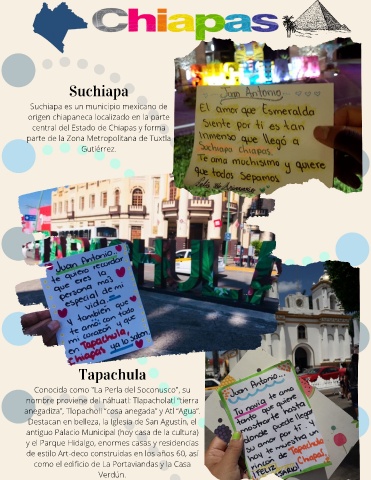 Chiapas
Suchiapa
Suchiapa es un municipio mexicano de
origen chiapaneca localizado en la parte
central del Estado de Chiapas y forma
parte de la Zona Metropolitana de Tuxtla
Gutiérrez.
Juan Antonio...
El amor que Esmeralda
Siente por ti es tan
inmenso que llegó a
Suchiapa Chiapas.
Te ama muchísimo y quiere
que todos Sepamos.
Feliz Aniversario
Juan Antonio...
te quiero recordar
que eres la
persona mas
especial de mi
vida
y también que
te amo con todo
mi corazón y que
en Tapachula,
Chiapas ya lo saben.
Juan Antonio...
Tu novia te ama
tanto que quiere
mostrar te hasta
donde puede llegar
su amor por ti. y
hoy te muestra un
rincón de Tapachula
Chiapas,
FELIZ
Tapachula
Conocida como "La Perla del Soconusco", su
nombre proviene del náhuatl: Tlapacholatl "tierra
anegadiza", Tlopacholl "cosa anegada" y Atl "Agua".
Destacan en belleza, la Iglesia de San Agustín, el
antiguo Palacio Municipal (hoy casa de la cultura)
y el Parque Hidalgo, enormes casas y residencias
de estilo Art-deco construidas en los años 60, así
como el edificio de La Portaviandas y la Casa
Verdún.